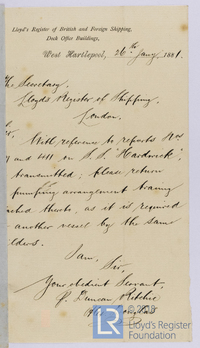 Lloyd's Register of British and Foreign Shipping,
Dock Office Buildings,
West Hartlepool, 26th Jany 1881.
The Secretary,
Lloyds Register of Shipping,
London.
With reference to reports Nos
and 411 on S.S. "Hardwick",
transmitted; please return
pumping arrangement tracing
attached thereto, as it is required
another vessel by the same
I am,
Sir,
Your obedient Servant,
P. Duncan Ritchie
Lloyd's Register
Foundation